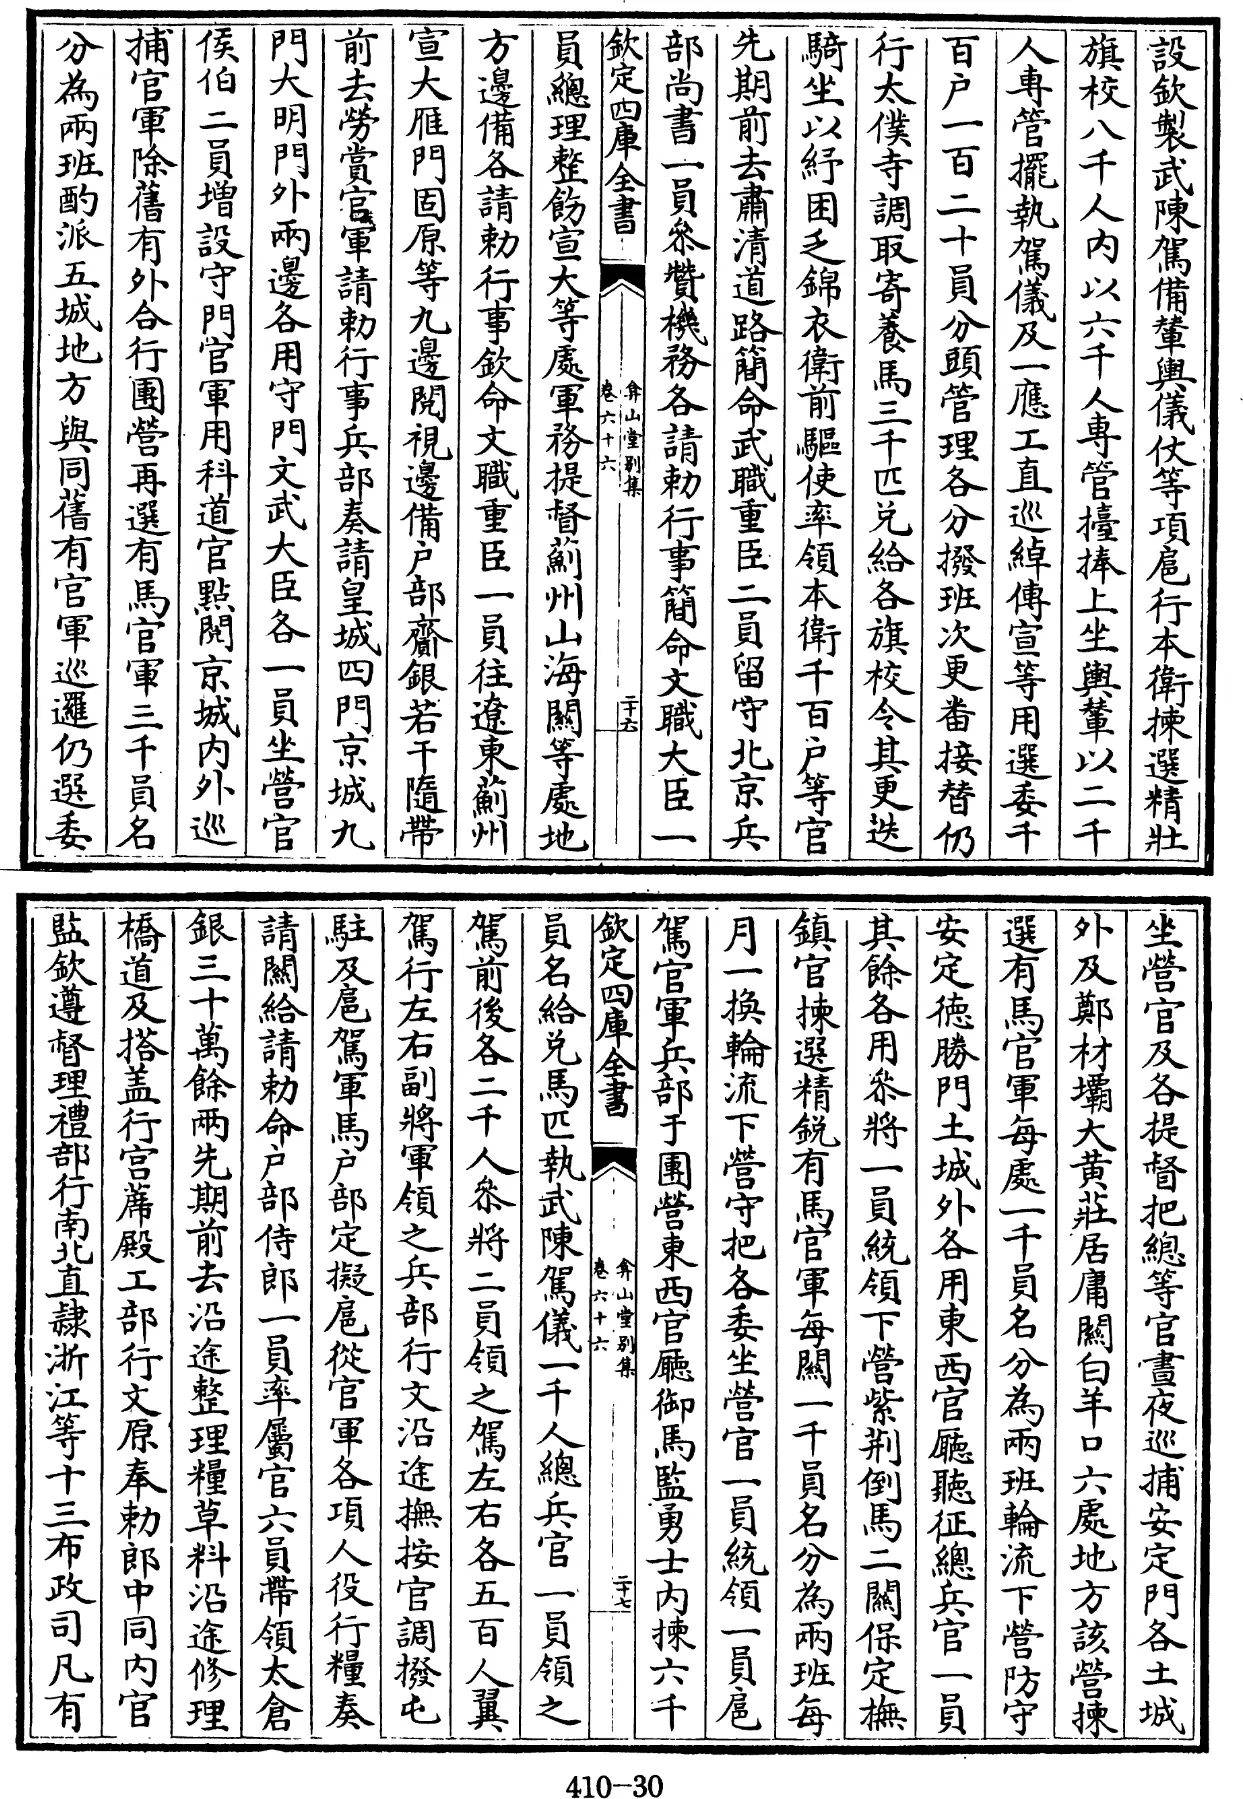 設欽製武陳駕備輦輿儀仗等項扈行本衛揀選精壯
旗校八千人内以六千人専管擡捧上坐輿輦以二千
人専管擺執駕儀及一應工直巡綽傳宣等用選委千
百户一百二十員分頭管理各分撥班次更畨接替仍
行太僕寺調取寄養馬三千匹兑給各旗校令其更迭
騎坐以紓困乏錦衣衛前驅使率領本衛千百户等官
先期前去肅清道路簡命武職重臣二員留守北京兵
部尚書一員叅贊機務各請勅行事簡命文職大臣一
欽定四庫全書
弇山堂别集
卷六十六
二十六
員總理整飭宣大等處軍務提督薊州山海關等處地
方邊備各請勅行事欽命文職重臣一員往遼東薊州
宣大雁門固原等九邊閱視邊備户部齎銀若干隨帶
前去勞賞官軍請勅行事兵部奏請皇城四門京城九
門大明門外兩邊各用守門文武大臣各一員坐營官
侯伯二員增設守門官軍用科道官點閱京城内外巡
捕官軍除舊有外合行團營再選有馬官軍三千員名
分為兩班酌派五城地方與同舊有官軍巡邏仍選委
坐營官及各提督把總等官晝夜巡捕安定門各土城
外及鄭材壩大黄莊居庸關白羊口六處地方該營揀
選有馬官軍每處一千員名分為兩班輪流下營防守
安定德勝門土城外各用東西官廳聽征總兵官一員
其餘各用叅將一員統領下營紫荆倒馬二關保定撫
鎮官揀選精鋭有馬官軍每關一千員名分為兩班每
月一換輪流下營守把各委坐營官一員統領一員扈
駕官軍兵部于團營東西官廳御馬監勇士内揀六千
欽定四庫全書
弇山堂别集
卷六十六
二十七
員名給兑馬匹執武陳駕儀一千人總兵官一員領之
駕前後各二千人叅將二員領之駕左右各五百人翼
駕行左右副將軍領之兵部行文沿途撫按官調撥屯
駐及扈駕軍馬户部定擬扈從官軍各項人役行糧奏
請關給請勅命户部侍郎一員率屬官六員帶領太倉
銀三十萬餘兩先期前去沿途整理糧草料沿途修理
橋道及搭盖行宫蓆殿工部行文原奉勅郎中同内官
監欽遵督理禮部行南北直隷浙江等十三布政司凡有
410-30